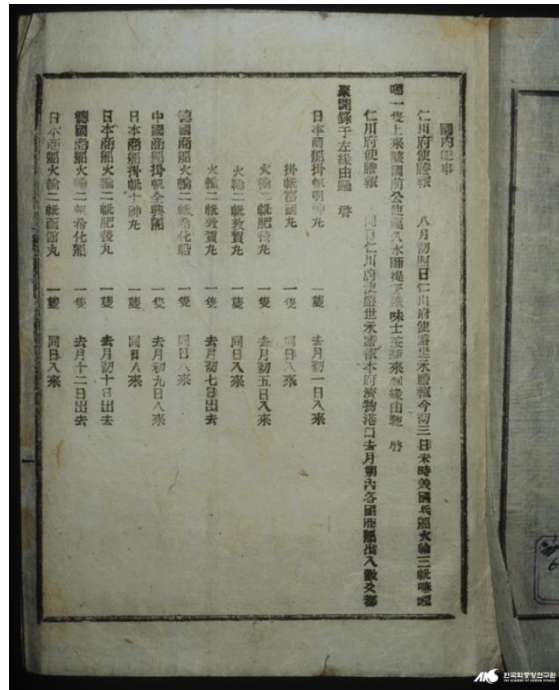 國內紀事
仁川府使謄報 八月初四日仁川府使 世永謄報今初三日未時美國兵船火輪三帆
一隻上來 國前公使 久水師提 味士 來 緣由馳 啓
仁川府使謄報 同日仁川府使 世永謄報本府濟物港口去月朔內各國商船出入數爻都
聚開錄于左緣由馳 啓
日本商船掛帆明神丸 一隻 去月初一日入來
掛帆富國丸 一隻 同日入來
火輪二帆肥後丸 一隻 去月初五日入來
火輪二帆敦賀丸 一隻 同日入來
火輪二帆敦賀丸 一隻 去月初七日出去
德國商船火輪二帆希化船 一隻 同日入來
中國商船掛帆全興國 一隻 去月初九日入來
日本商船掛帆十神丸 一隻 同日入來
日本商船火輪二帆肥後丸 一隻 去月初十日出去
德國商船火輪二帆希化船 一隻 去月十二日出去
日本商船火輪二帆函館丸 一隻 同日入來
한국학중앙연구원